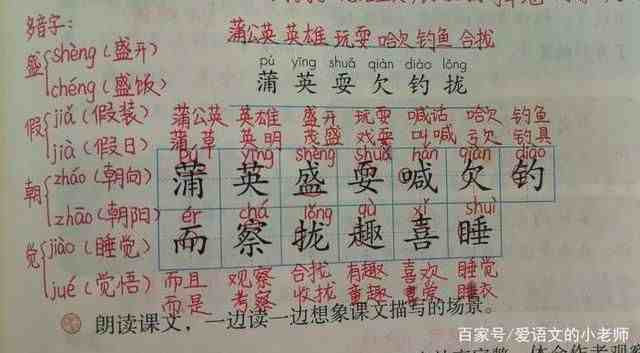 多音字:
盛 shèng(盛开)
chéng(盛饭)
假 jiǎ(假装)
jià(假日)
朝 zháo(朝向)
zhāo(朝阳)
觉 jiào(睡觉)
jué(觉悟)
蒲公英 英雄 玩耍 哈欠 钓鱼 合拢
pú yīng shuǎ qiàn diào lǒng
蒲 英 耍 欠 钓 拢
蒲公英 英雄 盛开 玩耍 喊话 哈欠 钓鱼
蒲草 英明 茂盛 戏耍 叫喊 亏欠 钓具
pú yīng shèng shuǎ hǎn qiàn diào
蒲 英 盛 耍 喊 欠 钓
ér chá lǒng qù xǐ shuì
而 察 拢 趣 喜 睡
而且 观察 合拢 有趣 喜欢 睡觉
而是 考察 收拢 童趣 睡衣
朗读课文,一边读一边想象课文描写的场景。
百家号/爱语文的小老师